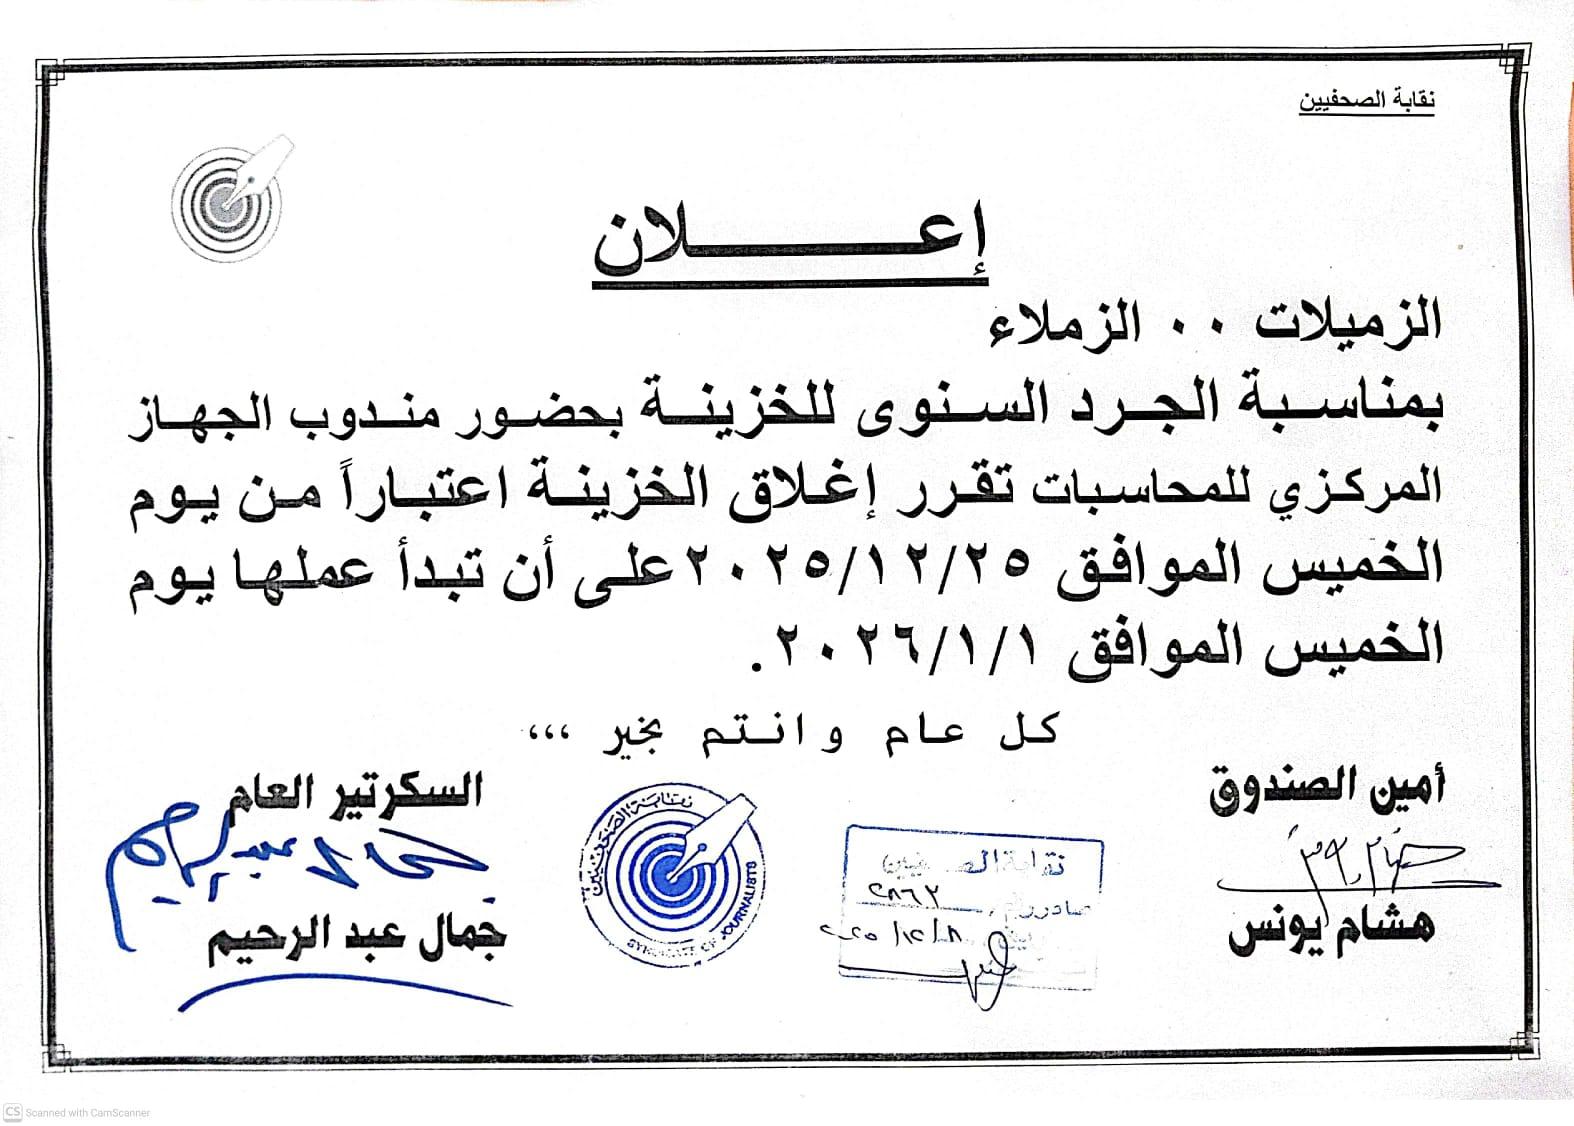 نقابة الصحفيين
إعـــــــــلان
الزميلات ٠٠ الزملاء
بمناسبة الجرد السنوى للخزينة بحضور مندوب الجهاز
المركزي للمحاسبات تقرر إغلاق الخزينة اعتباراً من يوم
الخميس الموافق ٢٠٢٥/١٢/٢٥ على أن تبدأ عملها يوم
الخميس الموافق ٢٠٢٦/١/١.
كل عام وانتم بخير ،،،
أمين الصندوق
هشام يونس
السكرتير العام
جمال عبد الرحيم
نقابة الصحفيين
SYNDICATE OF JOURNALISTS
نقابة الصحفيين
صادر رقم ٢٨٦٢
CS Scanned with CamScanner